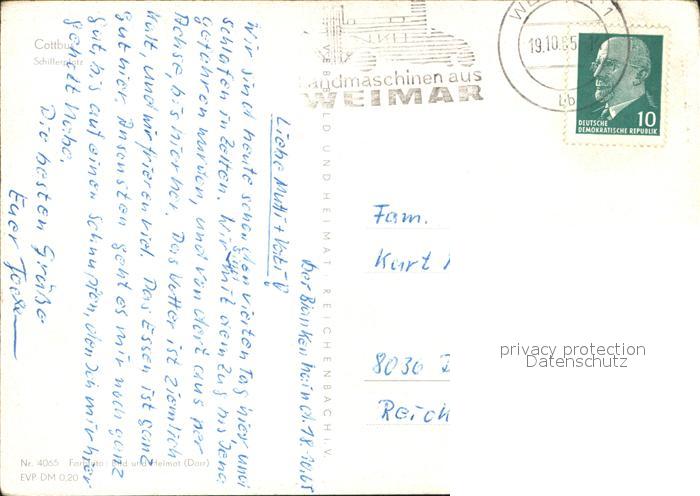 Cottbus
Schillerplatz
Landmaschinen aus
WEIMAR
19.10.65
DEUTSCHE
DEMOKRATISCHE REPUBLIK
10
VEB BILD UND HEIMAT REICHENBACH I. V.
d. 18.10.65
Liebe Mutti + Vati!
Wir sind heute schon den vierten Tag hier, und
schlafen in Zelten. Wir sind mit dem Zug bis Jena
gefahren wurden, und von dort aus per
Achse, bis hierher. Das Wetter ist ziemlich
kalt, und wir frieren viel. Das Essen ist ganz
gut hier. Ansonsten geht es mir noch ganz
gut, bis auf einen Schnupfen, den ich mir hier
geholt habe.
Die besten Grüße
Euer
Fam.
Kurt
8036
Reich
privacy protection
Datenschutz
Nr. 4065 Farbfoto: Bild und Heimat (Darr)
EVP DM 0,20